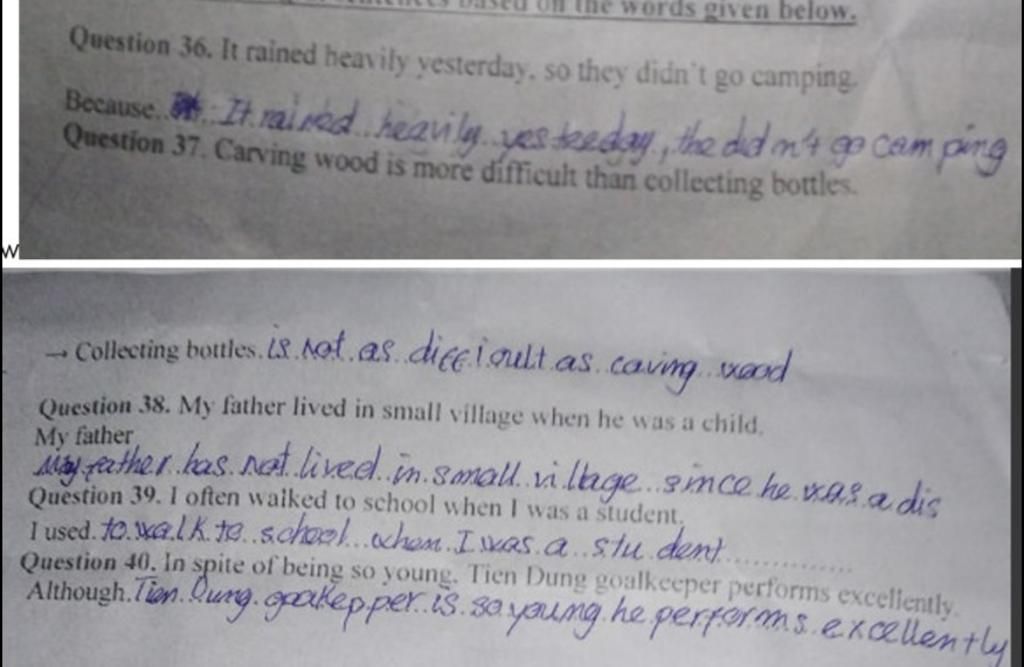 sentences based on the words given below.
Question 36. It rained heavily yesterday, so they didn't go camping.
Because It rained heavily yesteeday, the did n't go camping
Question 37. Carving wood is more difficult than collecting bottles.
w
→ Collecting bottles. is not as difficult as caving wood
Question 38. My father lived in small village when he was a child.
My father
My father has not lived in small village since he was a
Question 39. I often walked to school when I was a student.
I used to walk to school when I was a student
Question 40. In spite of being so young, Tien Dung goalkeeper performs excellently.
Although Tien Dung goakepper is so young he performs excellently